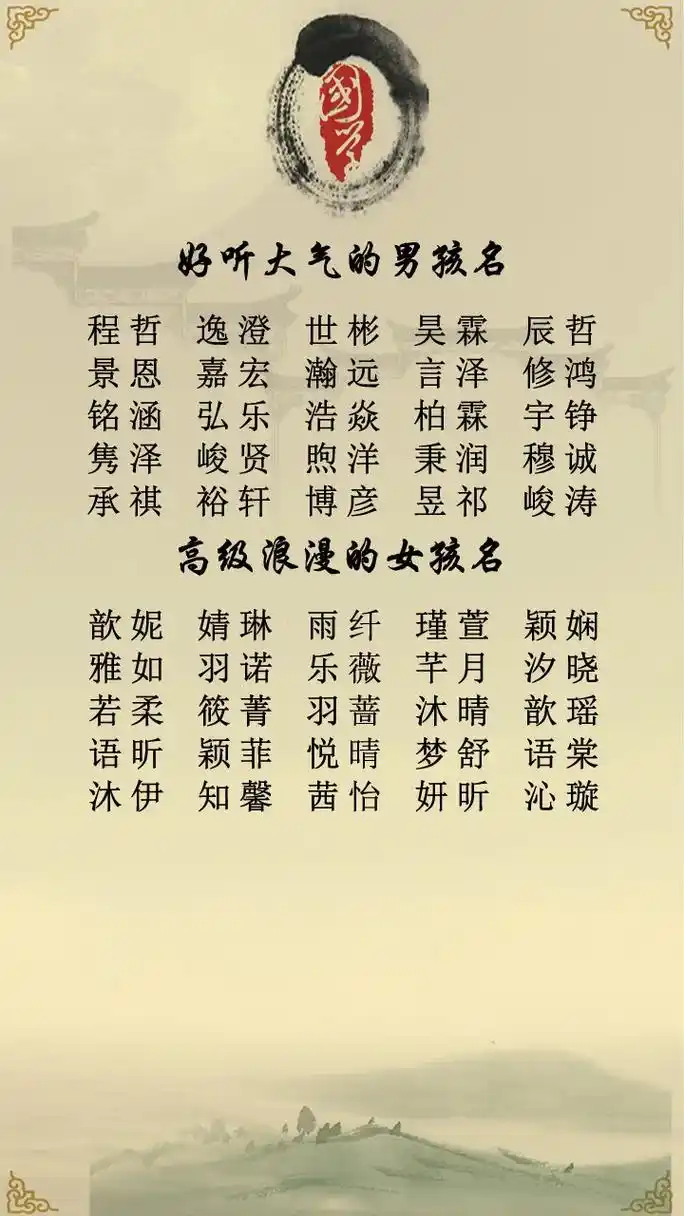 國学
好听大气的男孩名
程哲 逸澄 世彬 昊霖 辰哲
景恩 嘉宏 瀚远 言泽 修鸿
铭涵 弘乐 浩焱 柏霖 宇铮
隽泽 峻贤 煦洋 秉润 穆诚
承祺 裕轩 博彦 昱祁 峻涛
高级浪漫的女孩名
歆妮 婧琳 雨纤 瑾萱 颖娴
雅如 羽诺 乐薇 芊月 汐晓
若柔 筱菁 羽蔷 沐晴 歆瑶
语昕 颖菲 悦晴 梦舒 语棠
沐伊 知馨 茜怡 妍昕 沁璇